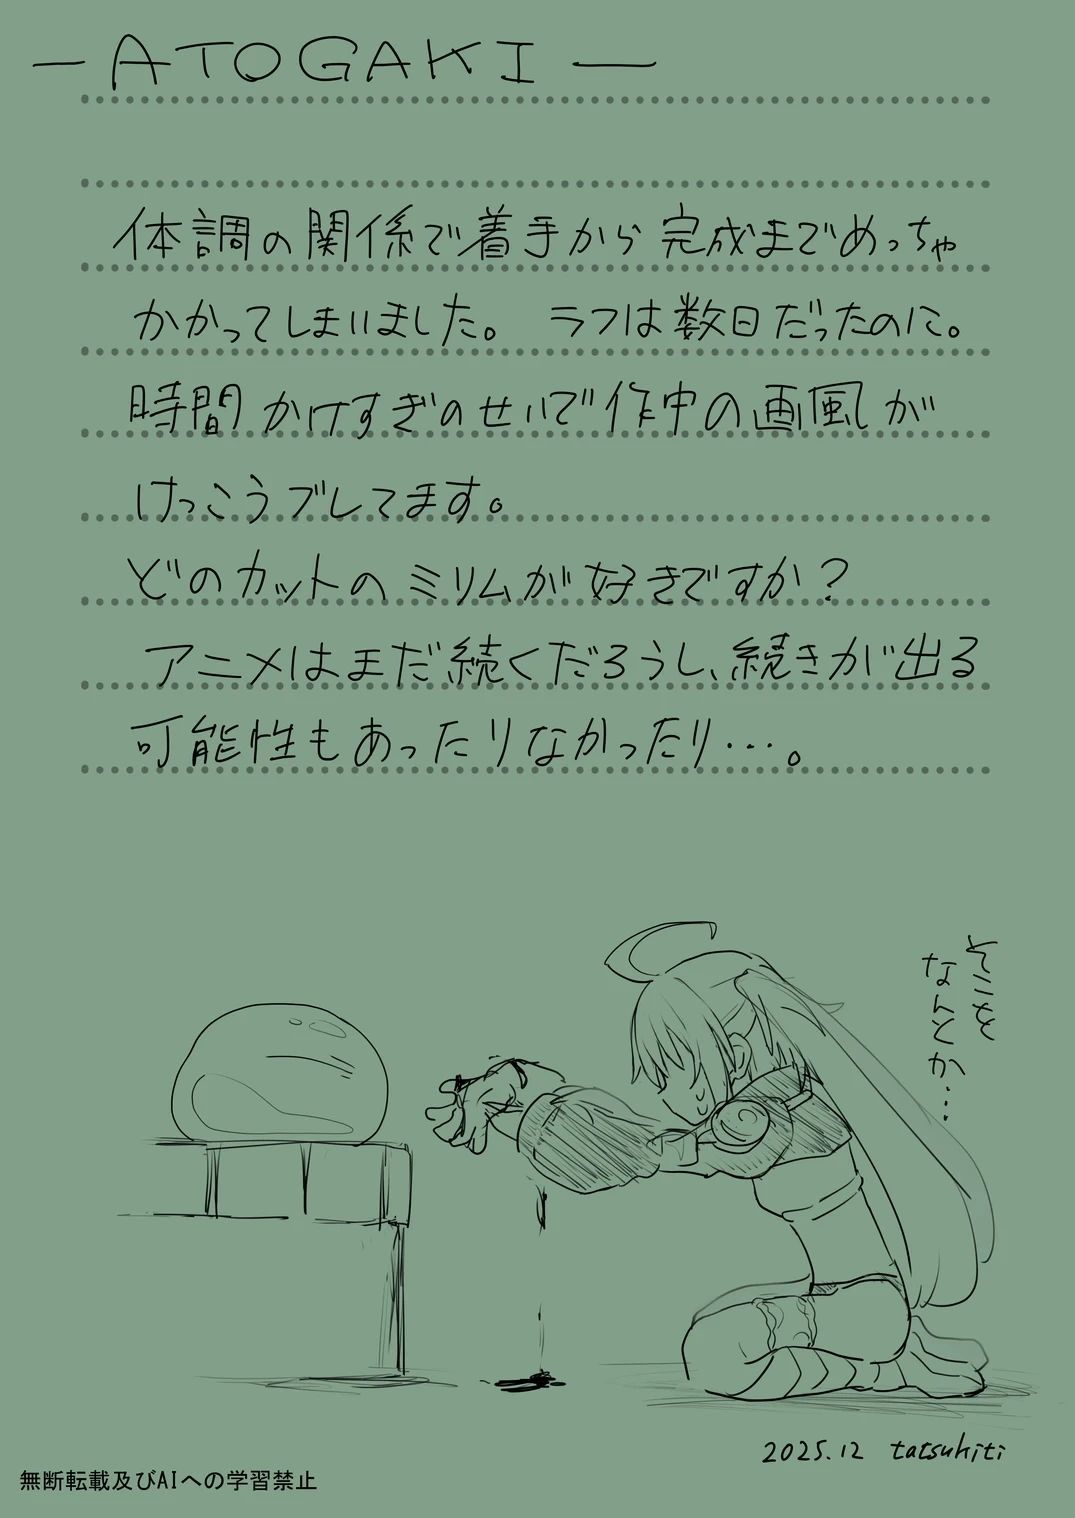 ーATOGAKIー
体調の関係で着手から完成までめっちゃ
かかってしまいました。 ラフは数日だったのに。
時間かけすぎのせいで作中の画風が
けっこうブレてます。
どのカットのミリムが好きですか?
アニメはまだ続くだろうし、続きが出る
可能性もあったりなかったり…。
そこを
なんとか…
2025.12 tatsuhiti
無断転載及びAIへの学習禁止